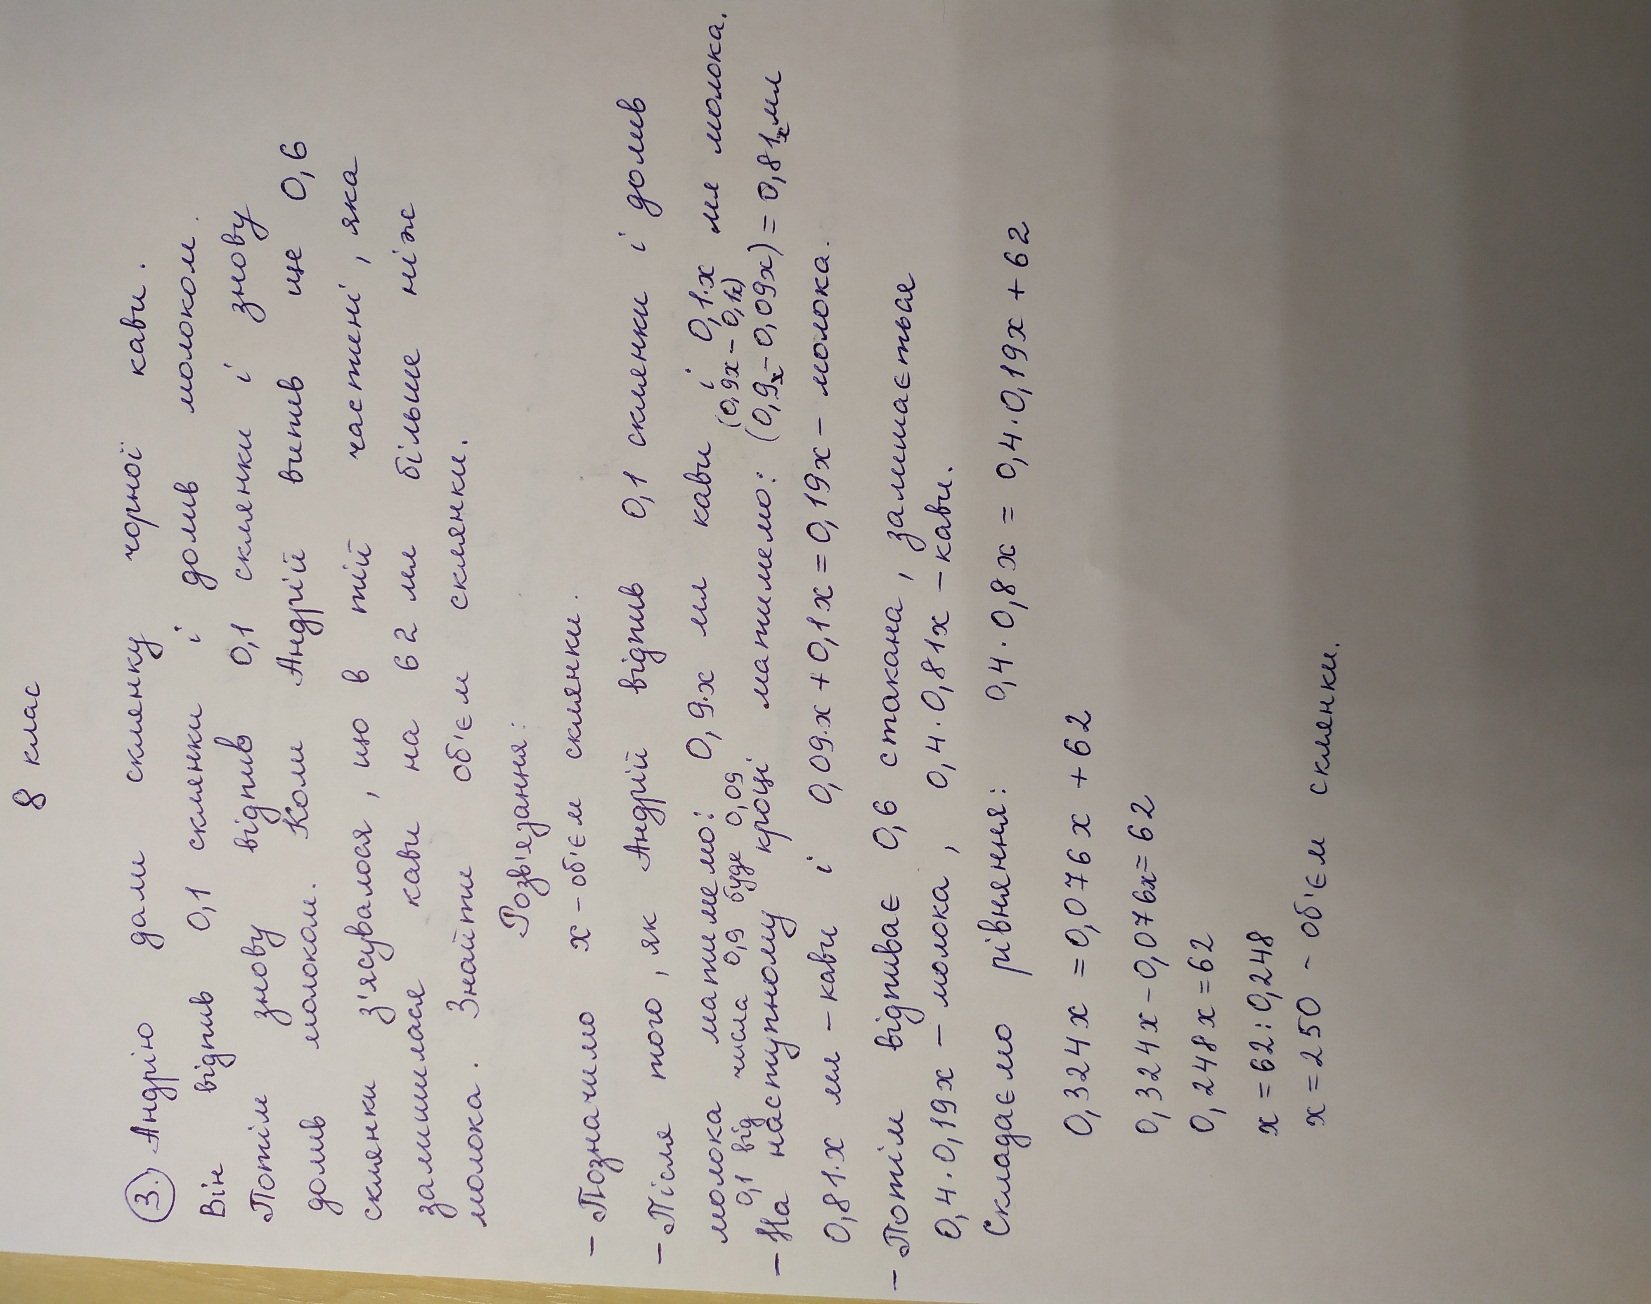 8 клас
3. Андрію дали склянку чорної кави.
Він відпив 0,1 склянки і долив молоком.
Потім знову відпив 0,1 склянки і знову
долив молоком. Коли Андрій випив ще 0,6
склянки з'ясувалося, що в тій частені, яка
залишилася кави на 62 мл більше ніж
молока. Знайти об'єм склянки.
Розв'язання:
– Позначимо x – об'єм склянки.
– Після того, як Андрій відпив 0,1 склянки і долив
молока матимемо: 0,9·x мл кави і 0,1·x мл молока.
0,1 від числа 0,9 буде 0,09 (0,9x – 0,1x)
– На наступному кроці матимемо: (0,9x – 0,09x) = 0,81x мл
0,81·x мл – кави і 0,09·x + 0,1x = 0,19x – молока.
– Потім відпиває 0,6 стакана, залишається
0,4·0,19x – молока, 0,4·0,81x – кави.
Складаємо рівняння: 0,4·0,8x = 0,4·0,19x + 62
0,324x = 0,076x + 62
0,324x – 0,076x = 62
0,248x = 62
x = 62:0,248
x = 250 – об'єм склянки.